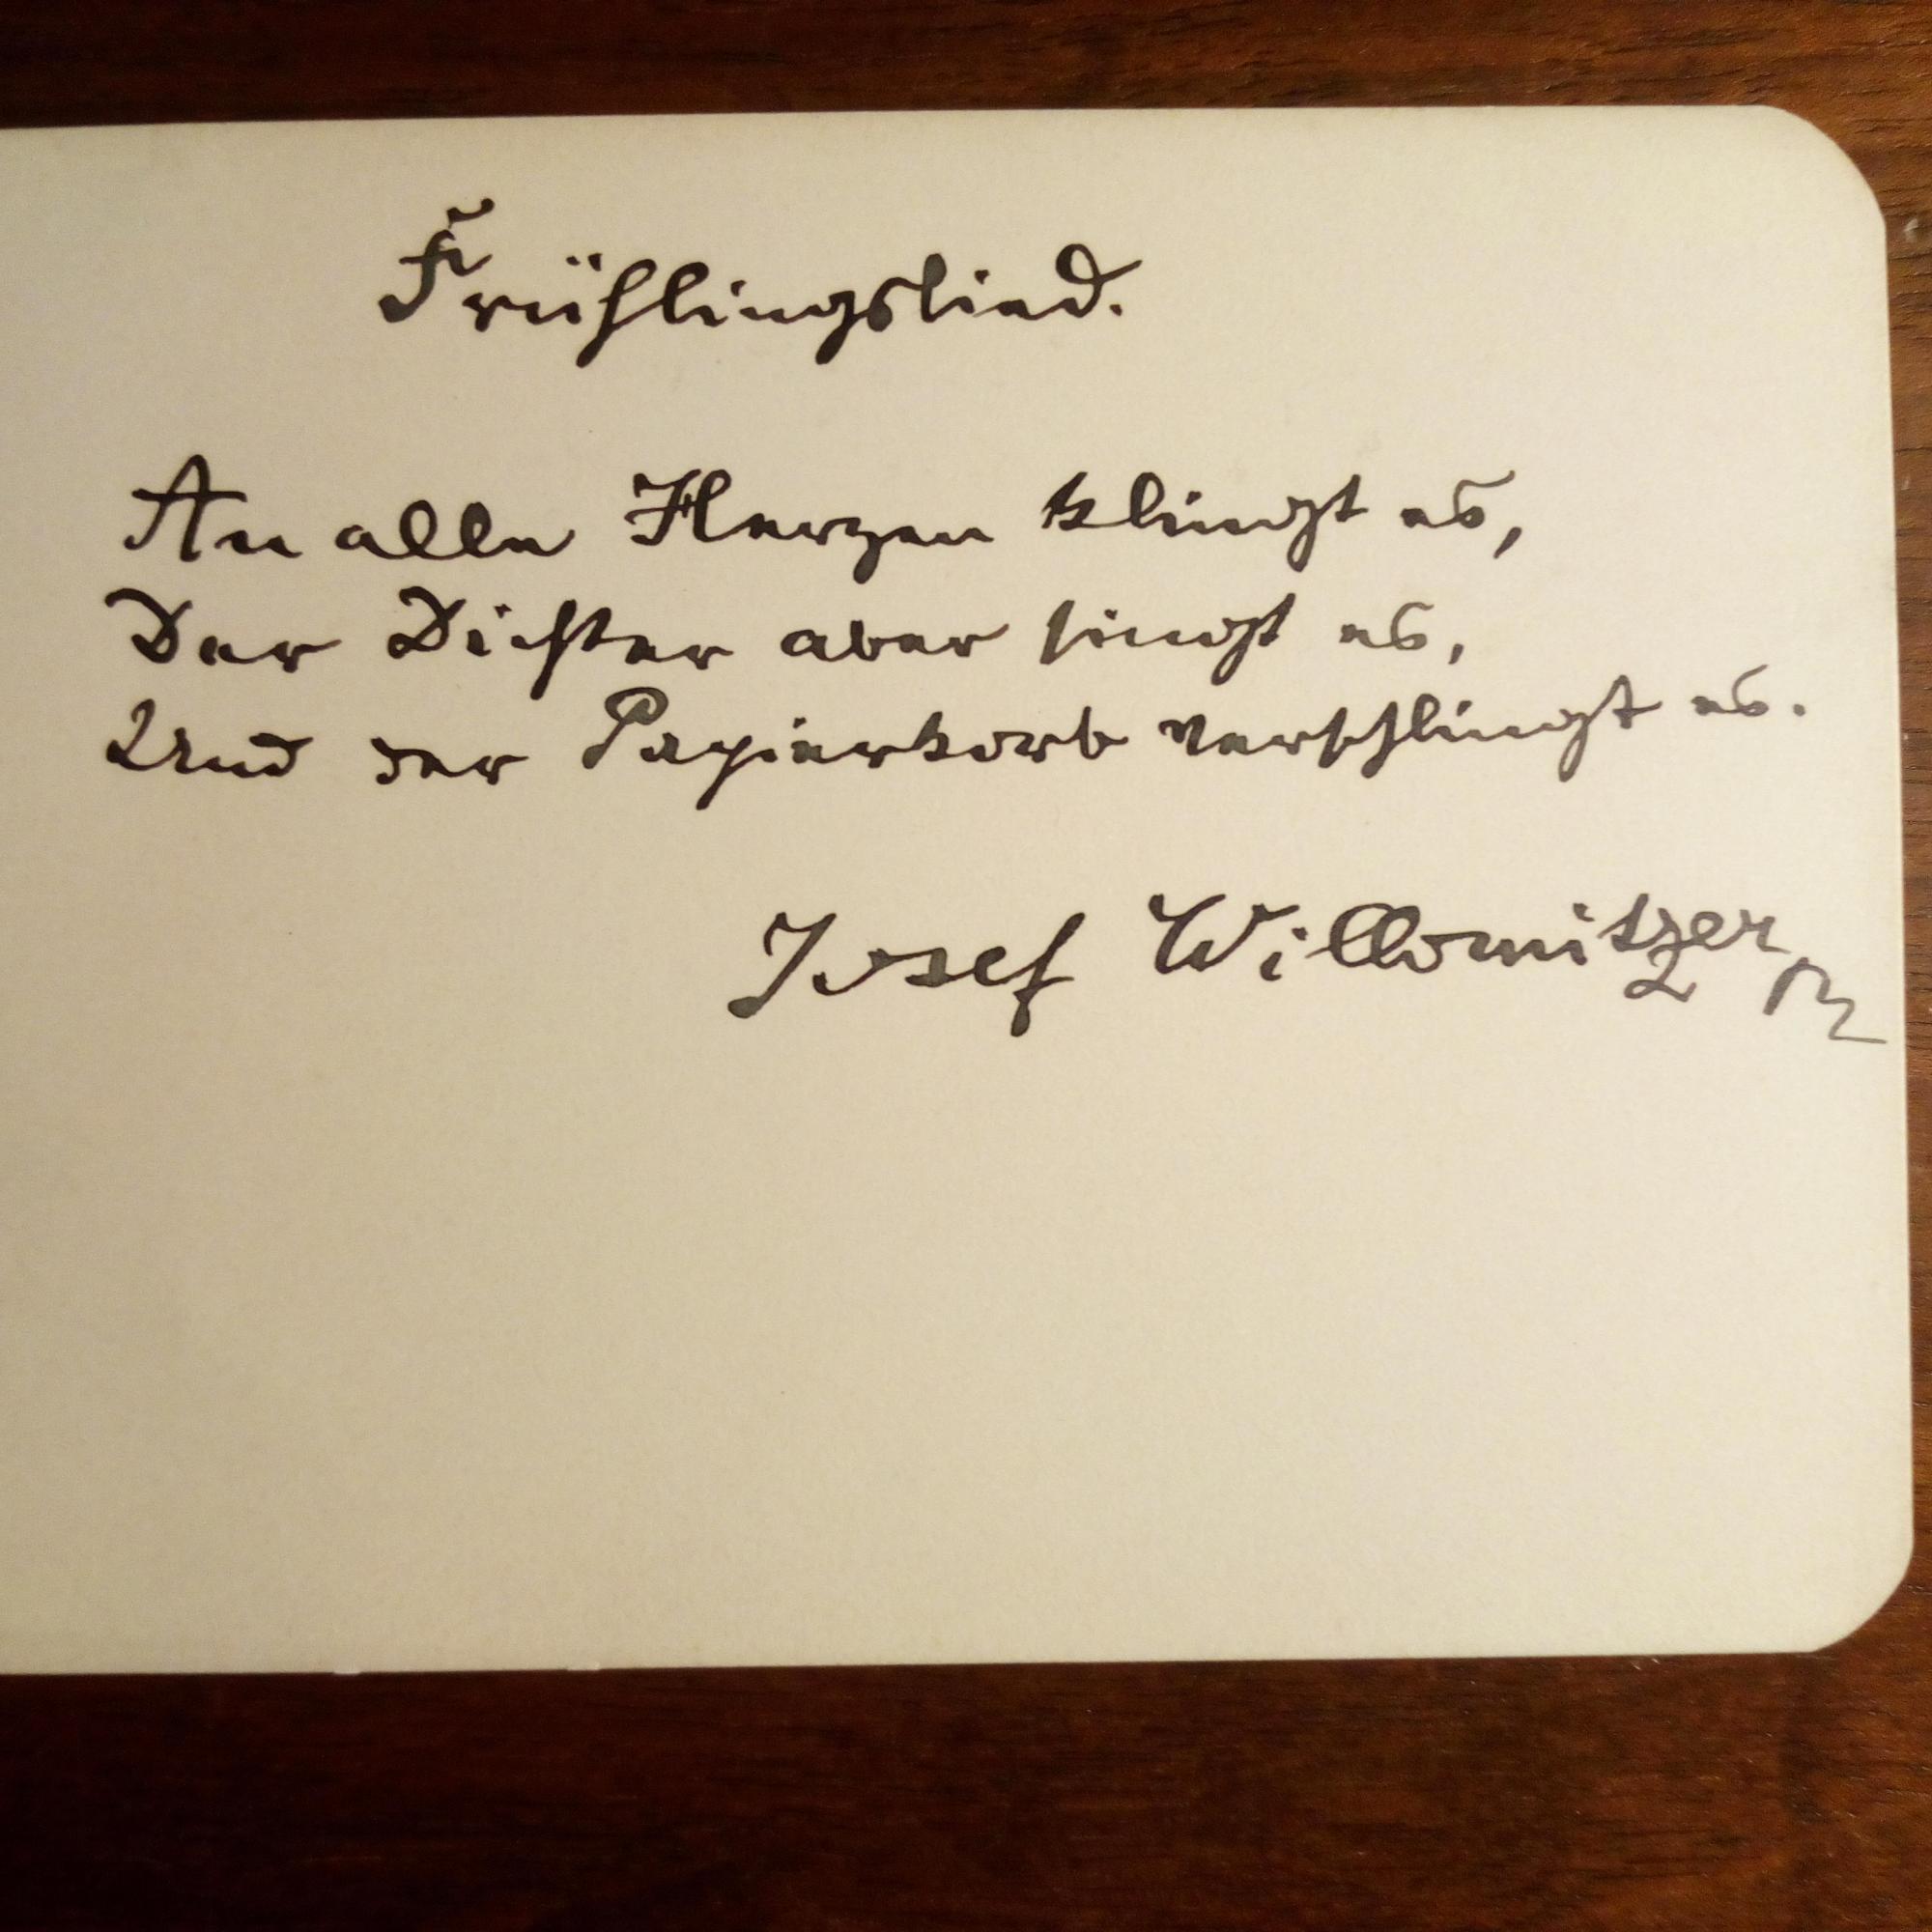 Frühlingslied.
An alle Herzen klingt es,
Der Dichter aber singt es,
Und der Papierkorb verschlingt es.
Josef Willomitzer